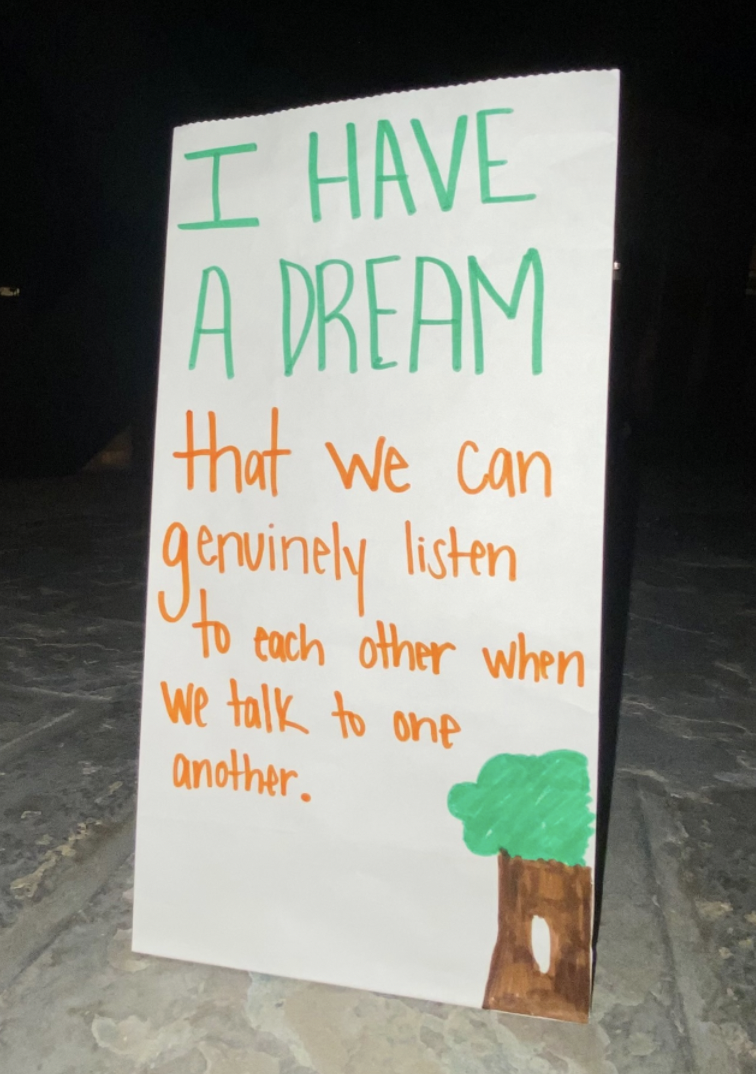 I HAVE
A DREAM
that we can
genuinely listen
to each other when
we talk to one
another.